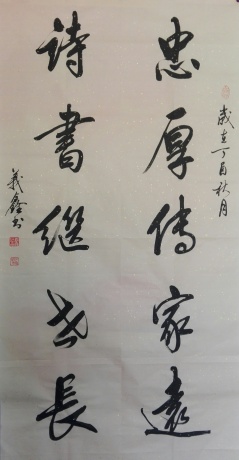 歲在丁酉秋月
忠厚傳家遠
詩書繼世長
義鑫書